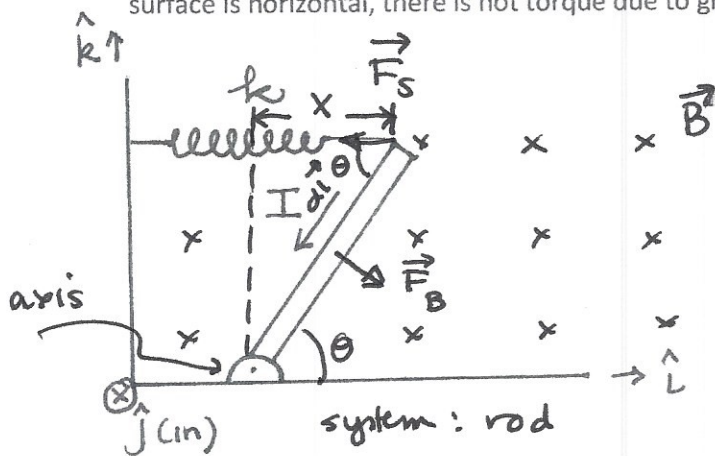 surface is horizontal, there is not torque due to g
k̂ ↑
k
x
F⃗s
B⃗
θ
I dl⃗
F⃗B
axis
θ
ĵ (in)
system : rod
→ î